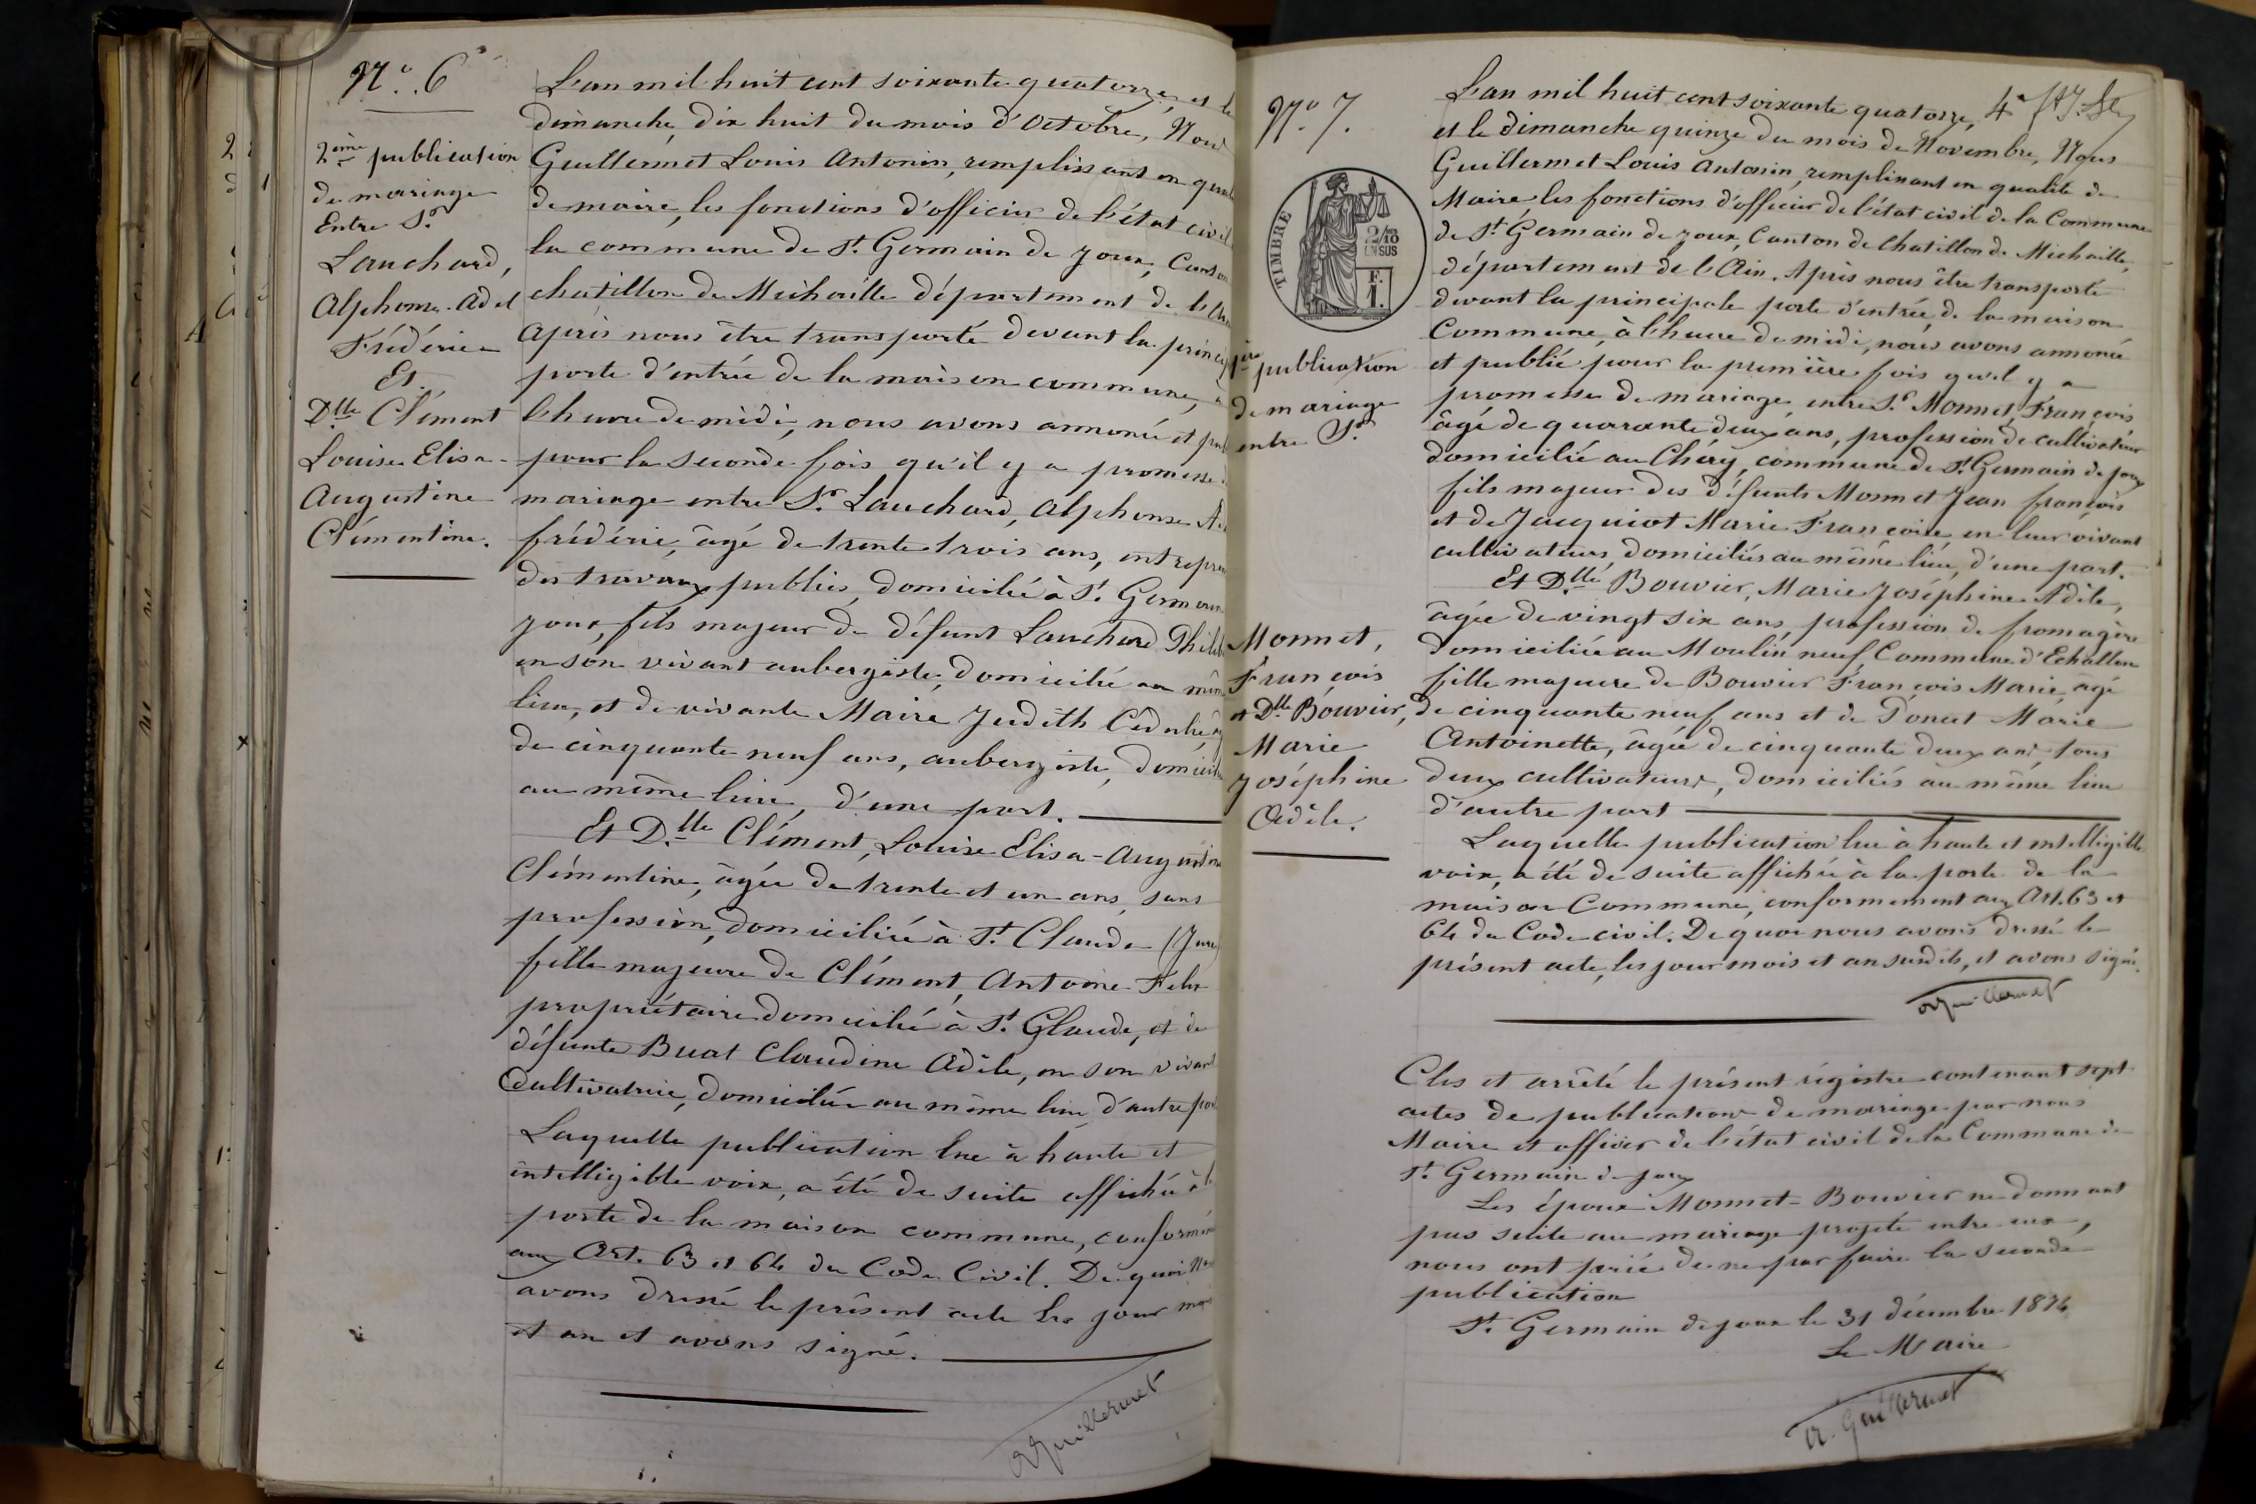 N.o 6
2ème publication
de mariage
Entre Sr
Lauchard,
Alphonse Adel
Frédéric
Et
Dlle Clément
Louise Elisa-
Augustine
Clémentine.
L'an mil huit cent soixante quatorze, et le
dimanche, dix huit du mois d'Octobre, Nous
Guillermet Louis Antonin, remplissant en
de maire, les fonctions d'officier de l'état civil
la commune de St. Germain de Joux, Canton
chatillon de Michaille département de l'Ain
après nous être transporté devant la
porte d'entrée de la maison commune, à
l'heure de midi, nous avons annoncé et
pour la seconde fois qu'il y a promesse
mariage entre Sr. Lauchard, Alphonse
frédéric, âgé de trente trois ans,
des travaux publics, domicilié à St. Germain
Joux, fils majeur de défunt Lauchard
en son vivant aubergiste, domicilié au même
lieu, et de vivante Maire Judith
de cinquante neuf ans, aubergiste,
au même lieu, d'une part.
Et D.lle Clément, Louise Elisa-Augustine
Clémentine, âgée de trente et un ans, sans
profession, domiciliée à St. Claude (Jura)
fille majeure de Clément, Antoine
propriétaire domicilié à St. Claude, et de
défunte Buat Claudine Adèle, en son vivant
Cultivatrice, domiciliée au même lieu, d'autre part
Laquelle publication lue à haute et
intelligible voix, a été de suite affichée à la
porte de la maison commune,
aux Art. 63 et 64 du Code Civil. De quoi
avons dressé le présent acte les jour mois
et an et avons signé.
A Guillermet
N.o 7.
TIMBRE
2/10
EN SUS
F.
1.
1ère publication
de mariage
entre Sr
Monnet,
François
et Dlle Bouvier,
Marie
Joséphine
Adèle.
L'an mil huit cent soixante quatorze,
et le dimanche quinze du mois de Novembre, Nous
Guillermet Louis Antonin, remplissant en qualité de
Maire les fonctions d'officier de l'état civil de la Commune
de St. Germain de Joux, Canton de Chatillon de Michaille,
département de l'Ain. Après nous être transporté
devant la principale porte d'entrée, de la maison
Commune, à l'heure de midi, nous avons annoncé
et publié pour la première fois qu'il y a
promesse de mariage, entre Sr. Monnet, François
âgé de quarante deux ans, profession de cultivateur
domicilié au Chéry, commune de St. Germain de Joux
fils majeur des défunts Monnet Jean françois
et de Jacquiot Marie Françoise, en leur vivant
cultivateurs, domiciliés au même lieu, d'une part.
Et D.lle Bouvier, Marie Joséphine Adèle,
âgée de vingt six ans, profession de fromagère
domiciliée au Moulin neuf, Commune d'Echallon
fille majeure de Bouvier François Marie, âgé
de cinquante neuf ans et de Poncet Marie
Antoinette, âgée de cinquante deux ans, tous
deux cultivateurs, domiciliés au même lieu
d'autre part
Laquelle publication lue à haute et intelligible
voix, a été de suite affichée à la porte de la
maison Commune, conformement aux Art. 63 et
64 du Code civil. De quoi nous avons dressé le
présent acte, les jour mois et an susdits, et avons signé.
A Guillermet
Clos et arrêté le présent régistre contenant sept
actes de publications de mariage par nous
Maire et officier de l'état civil de la Commune de
St. Germain de Joux
Les époux Monnet-Bouvier ne donnant
pas suite au mariage projeté entre eux,
nous ont prié de ne pas faire la seconde
publication
St. Germain de Joux le 31 décembre 1874
Le Maire
A. Guillermet